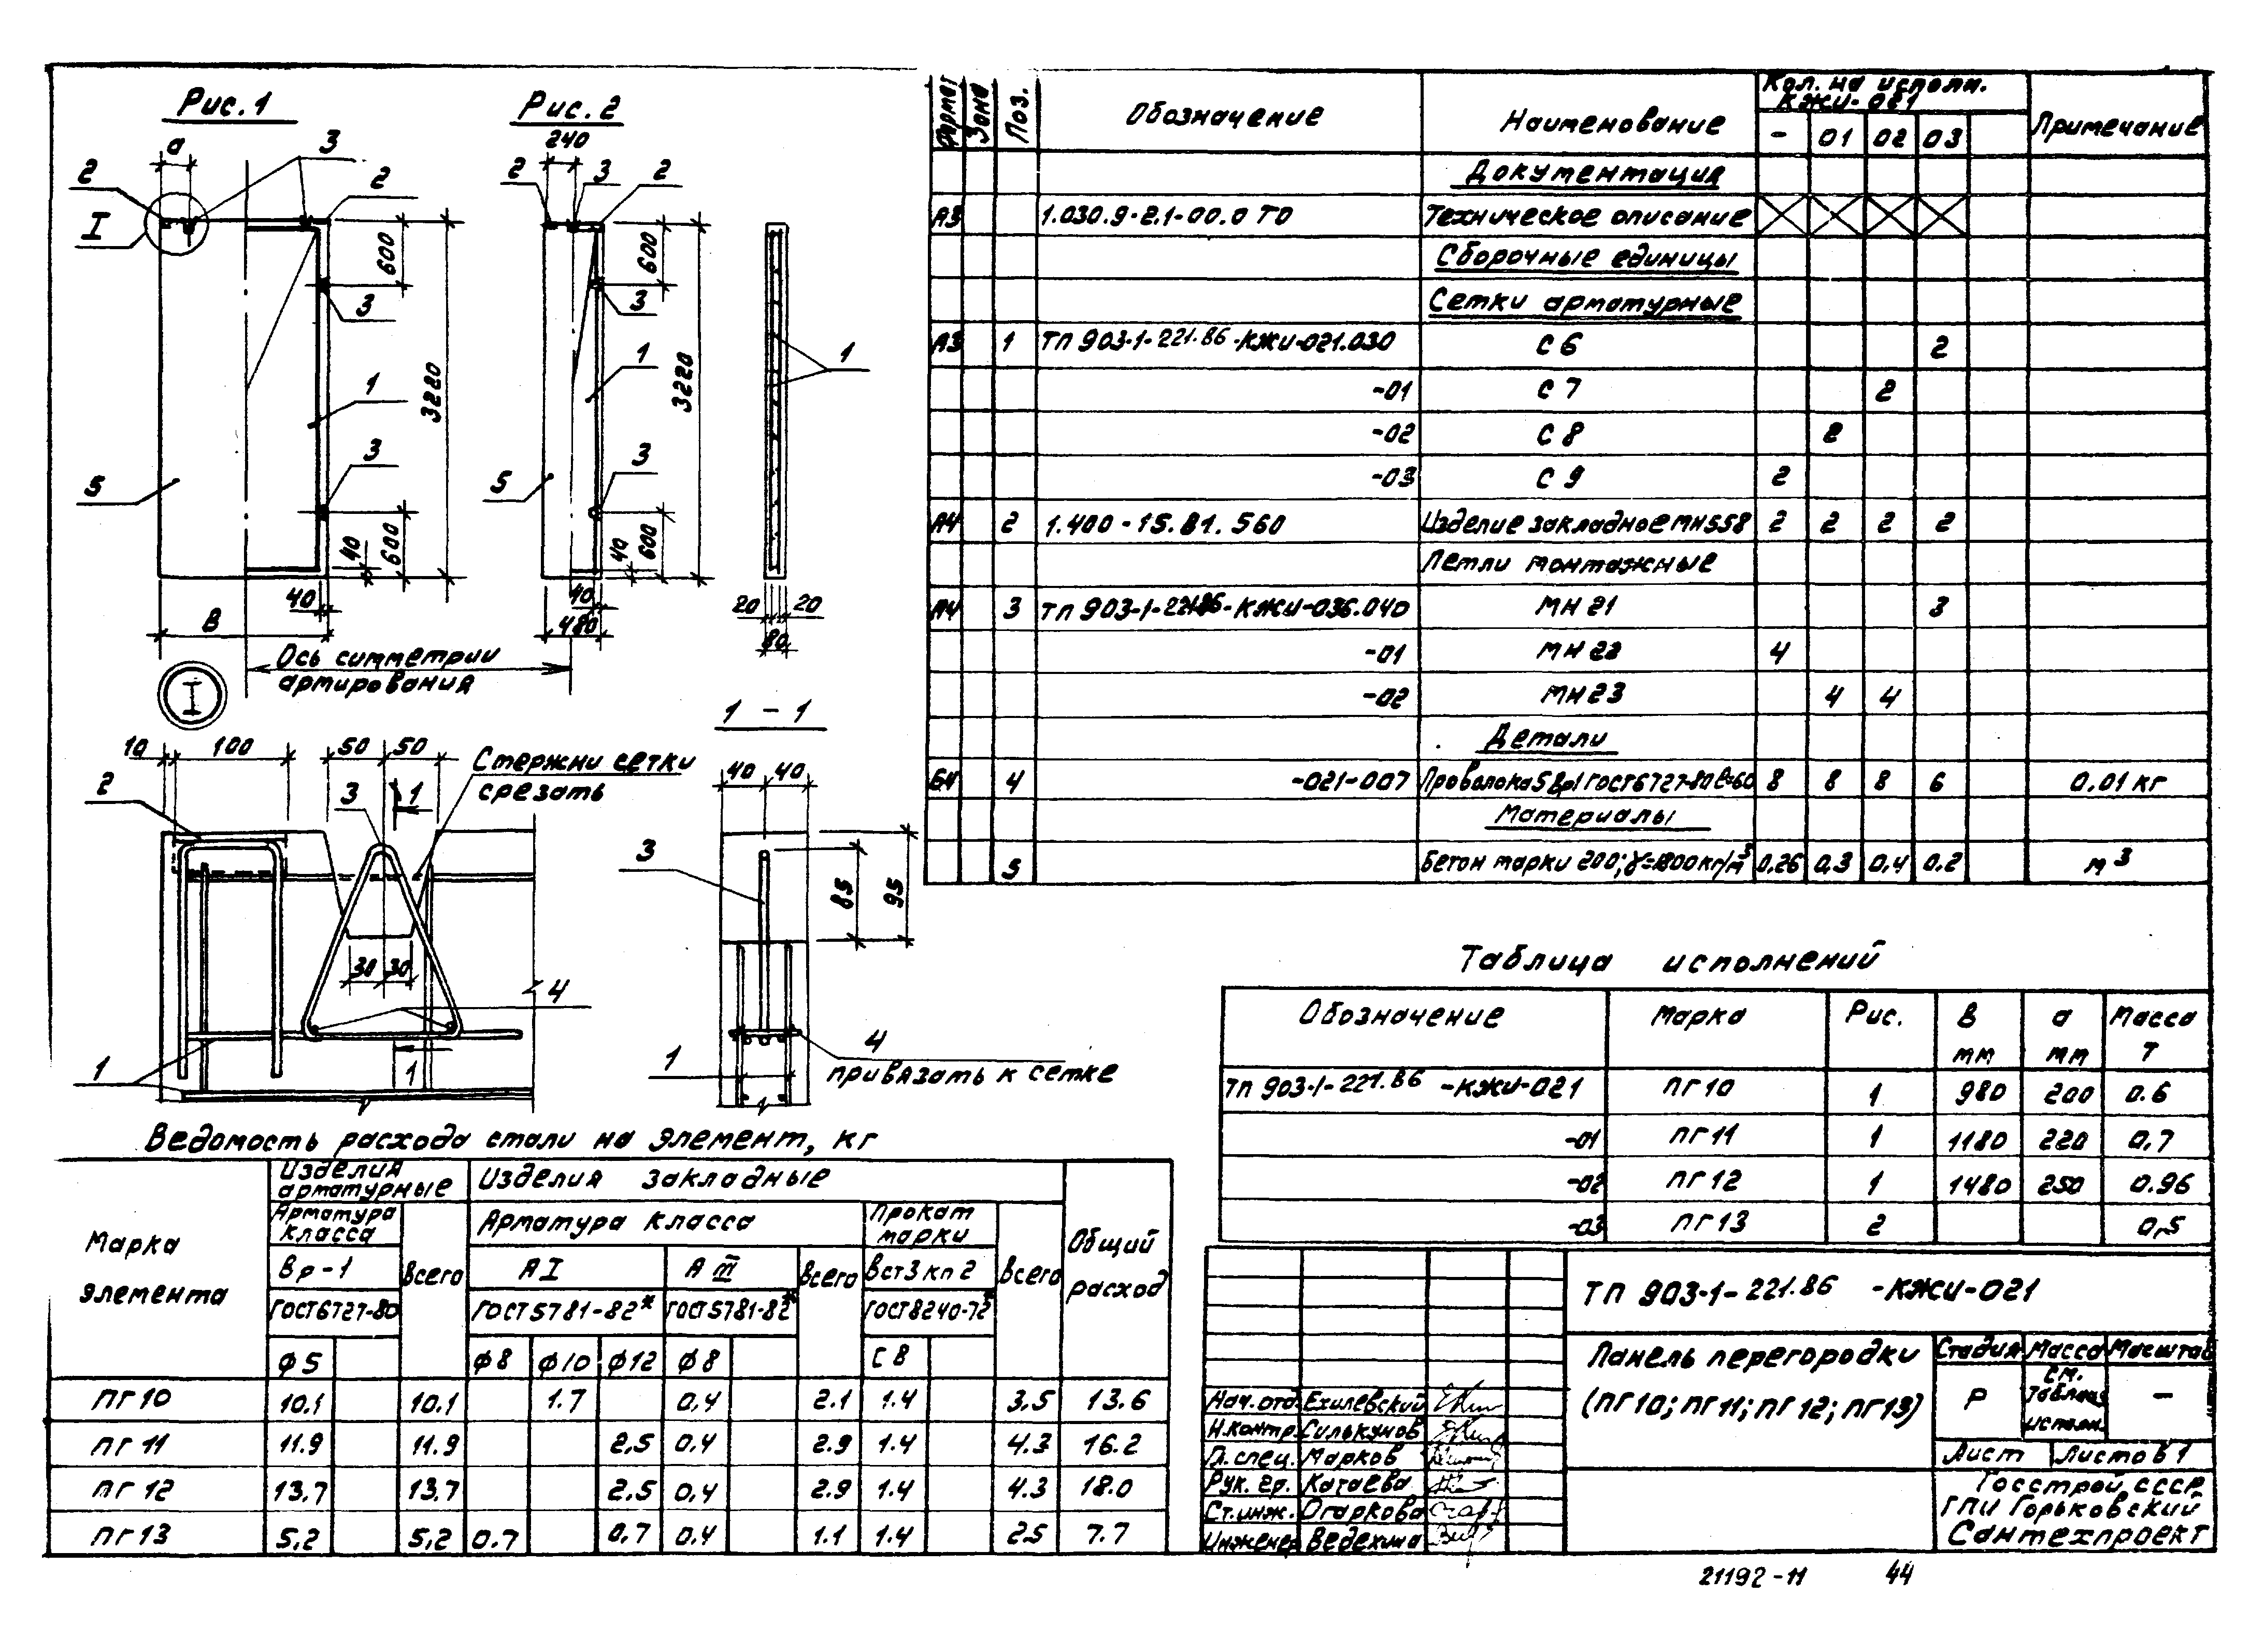 Рис.1
а
3
2
2
I
600
3
1
3220
3
5
40
600
40
В
Рис. 2
240
2 3 2
600
3
1
3220
3
5
40
600
40
480
1
20 20
80
Ось симметрии
армирования
I
10 100 50 50
Стержни сетки
срезать
2
3
1
30 30
4
1
1
1 - 1
40 40
3
85
95
4
1
привязать к сетке
Формат Зона Поз. Обозначение Наименование Кол. на исполн. КЖИ-021 Примечание
- 01 02 03
Документация
А3 1.030.9-2.1-00.0 ТО Техническое описание
Сборочные единицы
Сетки арматурные
А3 1 ТП 903-1-221.86-КЖИ-021.030 С 6 2
-01 С 7 2
-02 С 8 2
-03 С 9 2
А4 2 1.400-15.В1.560 Изделие закладное МН558 2 2 2 2
Петли монтажные
А4 3 ТП 903-1-221.86-КЖИ-036.040 МН 21 3
-01 МН 22 4
-02 МН 23 4 4
Детали
Б4 4 -021-007 Проволока 5 Вр1 ГОСТ 6727-80 ℓ=60 8 8 8 6 0.01 кг
Материалы
5 Бетон марки 200; γ=1800 кг/м³ 0.26 0,3 0,4 0.2 м³
Таблица исполнений
Обозначение Марка Рис. В мм а мм Масса Т
ТП 903-1-221.86 -КЖИ-021 ПГ10 1 980 200 0.6
-01 ПГ11 1 1180 220 0,7
-02 ПГ12 1 1480 250 0.96
-03 ПГ13 2 0,5
Ведомость расхода стали на элемент, кг
Марка элемента Изделия арматурные Изделия закладные Общий расход
Арматура класса Всего Арматура класса Всего Прокат марки Всего
Вр-1 А I А III Вст3 кп 2
ГОСТ 6727-80 ГОСТ 5781-82* ГОСТ 5781-82* ГОСТ 8240-72*
ϕ5 ϕ8 ϕ10 ϕ12 ϕ8 С 8
ПГ10 10.1 10.1 1.7 0,4 2.1 1.4 3,5 13.6
ПГ 11 11.9 11.9 2,5 0,4 2.9 1.4 4.3 16.2
ПГ 12 13,7 13,7 2,5 0,4 2.9 1.4 4.3 18.0
ПГ13 5,2 5,2 0.7 0,7 0.4 1.1 1.4 2.5 7.7
ТП 903-1-221.86 -КЖИ-021
Панель перегородки
(ПГ10; ПГ11; ПГ12; ПГ13)
Стадия Масса Масштаб
Р см. таблицу исполн. —
Лист Листов 1
Госстрой СССР
ГПИ Горьковский
Сантехпроект
Нач. отд. Ехилевский
Н.контр. Силькунов
Гл. спец. Марков
Рук. гр. Катаева
Ст.инж. Огаркова
Инженер Ведехина
21192-11 44